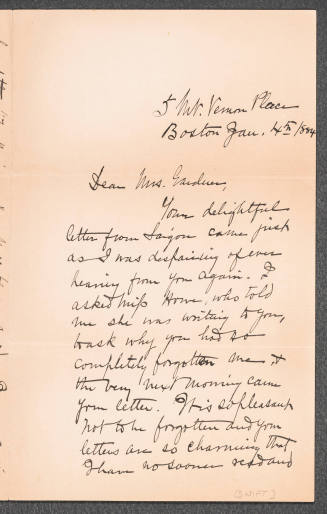 5 Mt. Vernon Place
Boston Jan. 4th 1884
Dear Mrs. Gardner,
Your delightful
letter from Saigon came just
as I was despairing of ever
hearing from you again. I
asked Miss Howe, who told
me she was writing to you,
to ask why you had so
completely forgotten me &
the very next morning came
your letter. It is so pleasant
not to be forgotten and your
letters are so charming that
I have no sooner read and
[SWIFT]